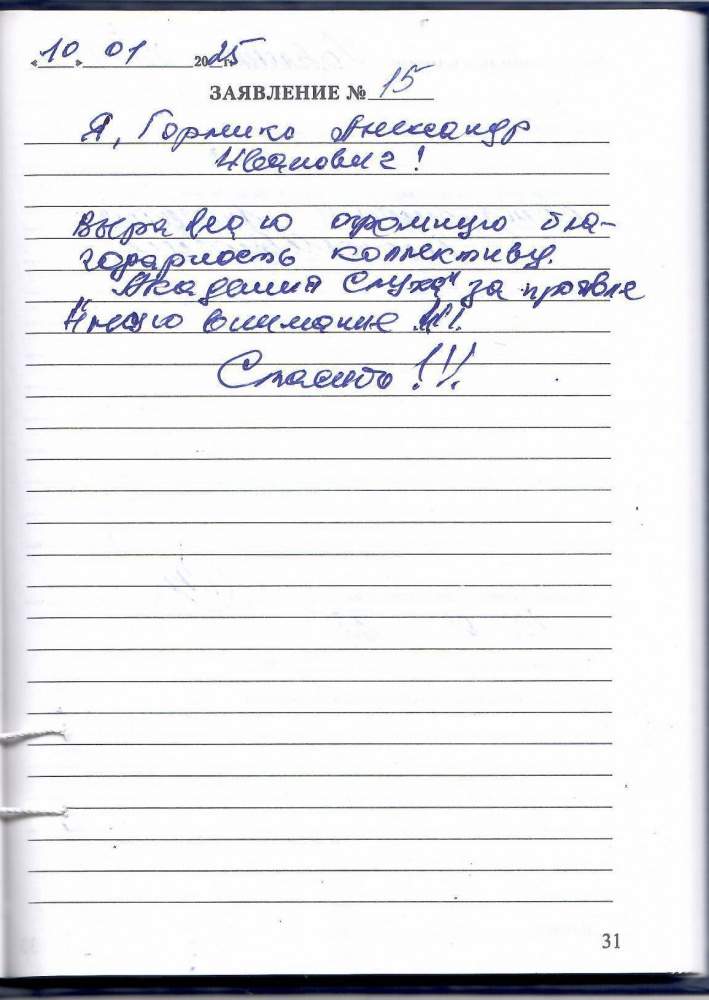 «10» 01 2025 г.
ЗАЯВЛЕНИЕ № 15
Я, Гормико Александр
Иванович!
Выражаю огромную бла-
годарность коллективу.
"Академия Слуха" за проявле
нную внимание!!!
Спасибо!!!
31